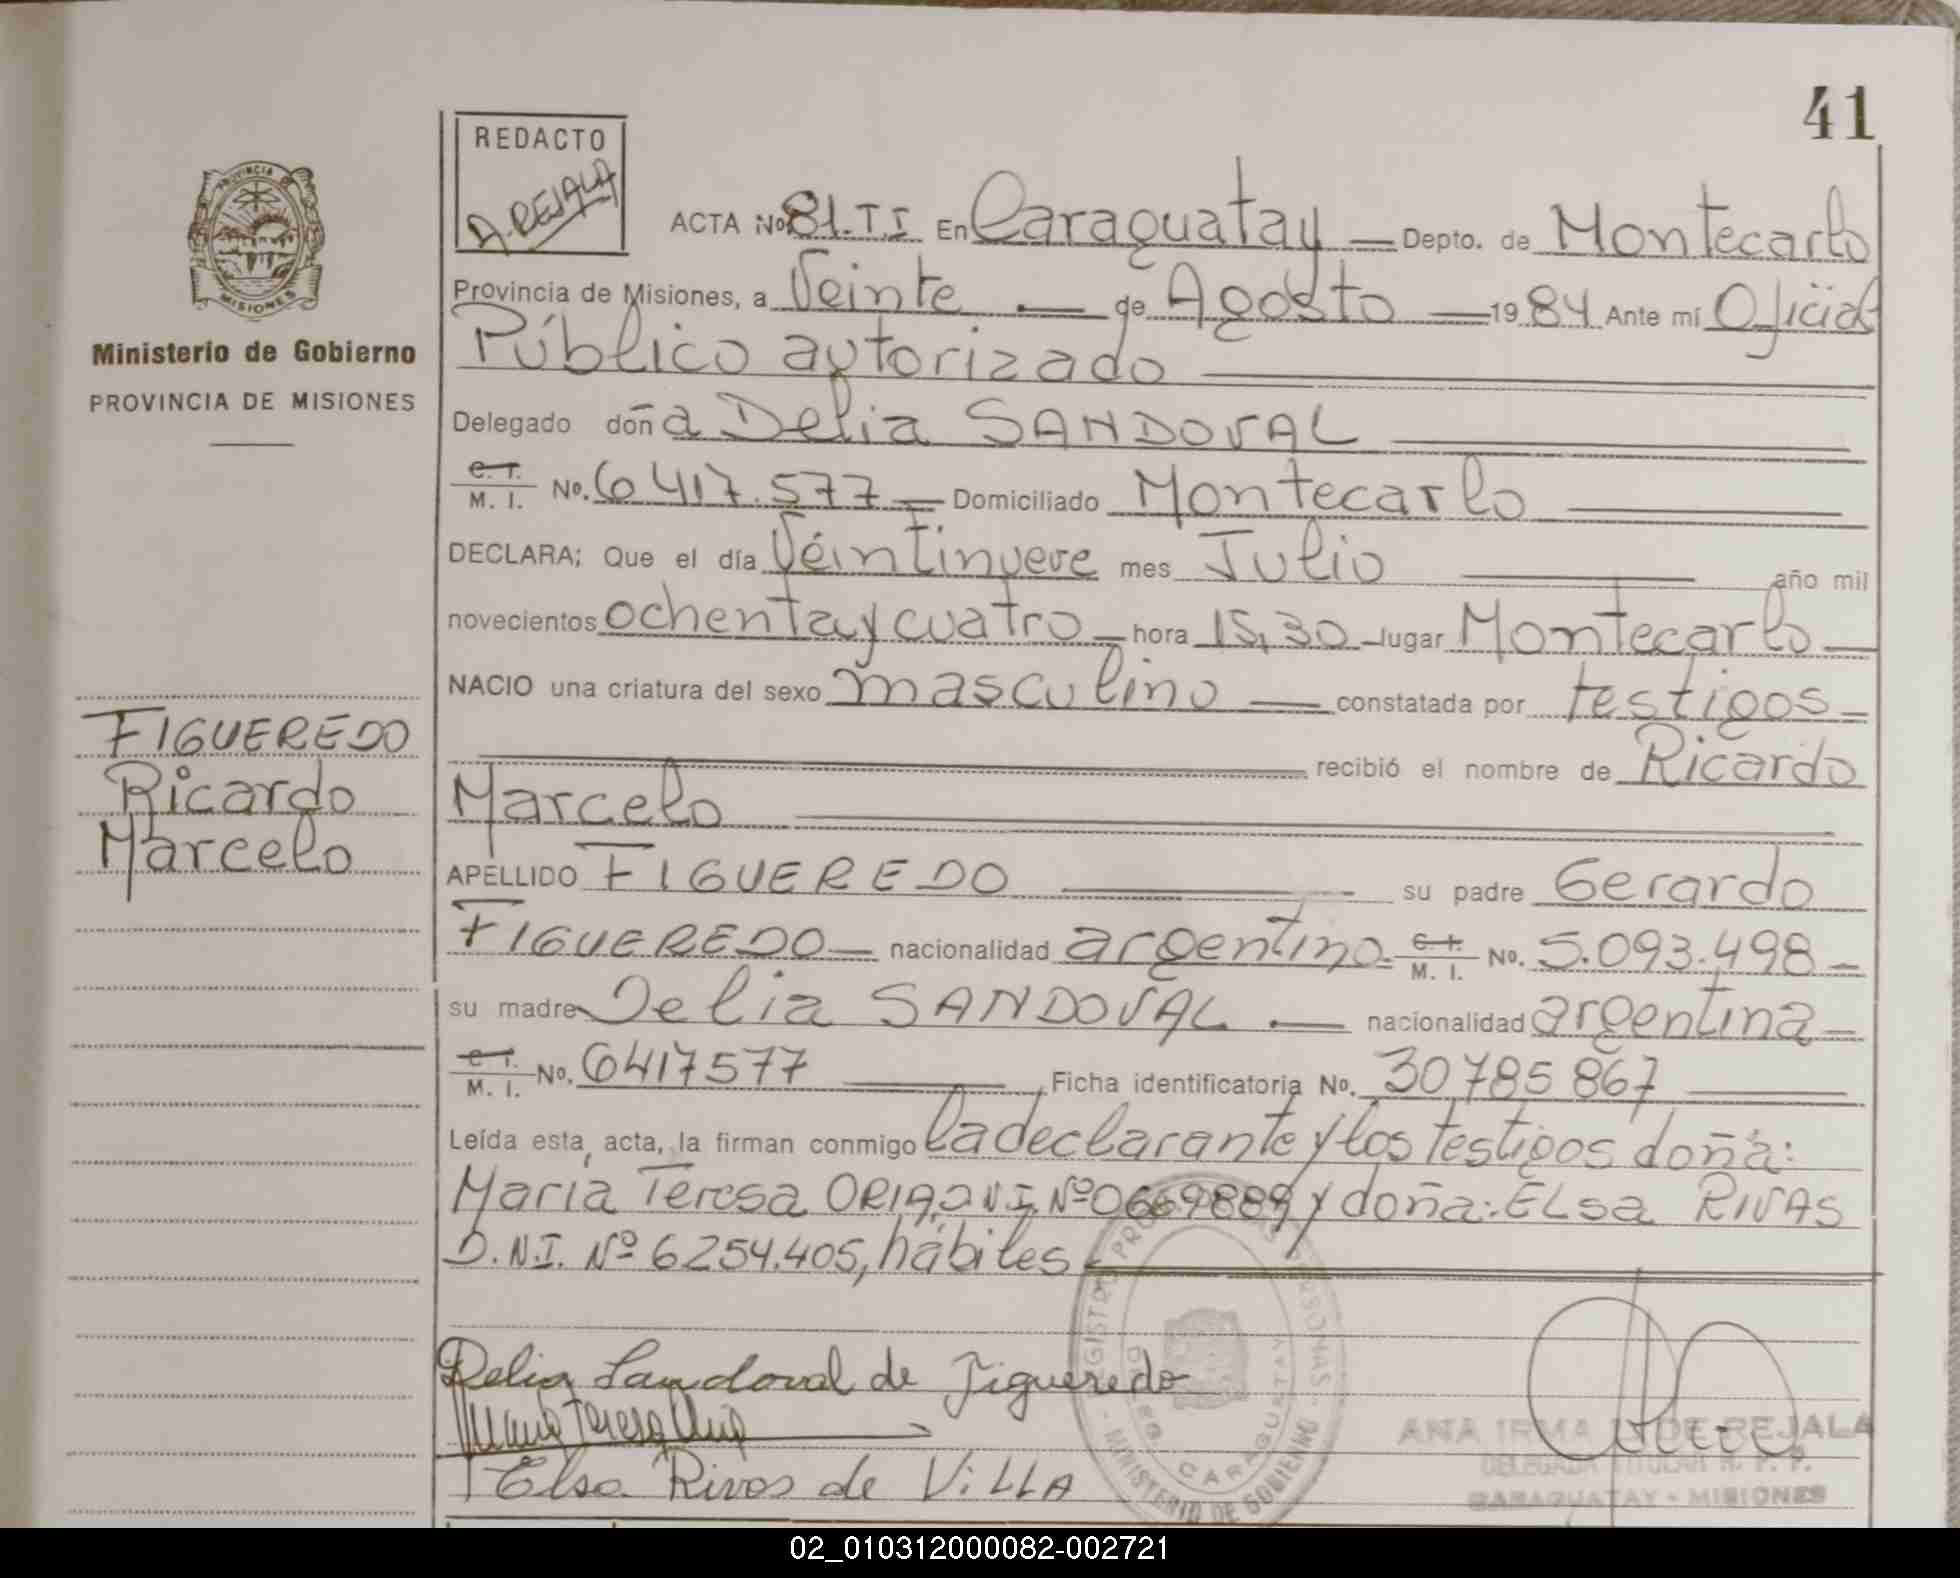 41
REDACTO
A. REJALA
ACTA No. 81.T.I En Caraguatay — Depto. de Montecarlo
Provincia de Misiones, a Veinte — de Agosto — 1984 Ante mí Oficial
Público autorizado
Delegado doña Delia SANDOVAL
C. I.
M. I. No. 6417.577 — Domiciliado Montecarlo
DECLARA; Que el día Veintinueve mes Julio año mil
novecientos ochenta y cuatro — hora 15,30 — lugar Montecarlo —
NACIO una criatura del sexo masculino — constatada por testigos —
recibió el nombre de Ricardo
Marcelo
APELLIDO FIGUEREDO su padre Gerardo
FIGUEREDO — nacionalidad argentino. C. I. M. I. No. 5.093.498 —
su madre Delia SANDOVAL — nacionalidad argentina —
C. I.
M. I. No. 6417577 Ficha identificatoria No. 30785867
Leída esta, acta, la firman conmigo la declarante y los testigos doña:
María Teresa y doña: ELsa RIVAS
D.N.I. Nº 6254.405, hábiles
Delia Sandoval de Figueredo
María Teresa
Elsa Rivas de ViLLA
PROVINCIA
MISIONES
Ministerio de Gobierno
PROVINCIA DE MISIONES
FIGUEREDO
Ricardo
Marcelo
REGISTRO PERSONAS
CARAGUATAY
MINISTERIO DE GOBIERNO
ANA IRMA DE REJALA
DELEGADA TITULAR R. P. P.
CARAGUATAY - MISIONES
02_010312000082-002721